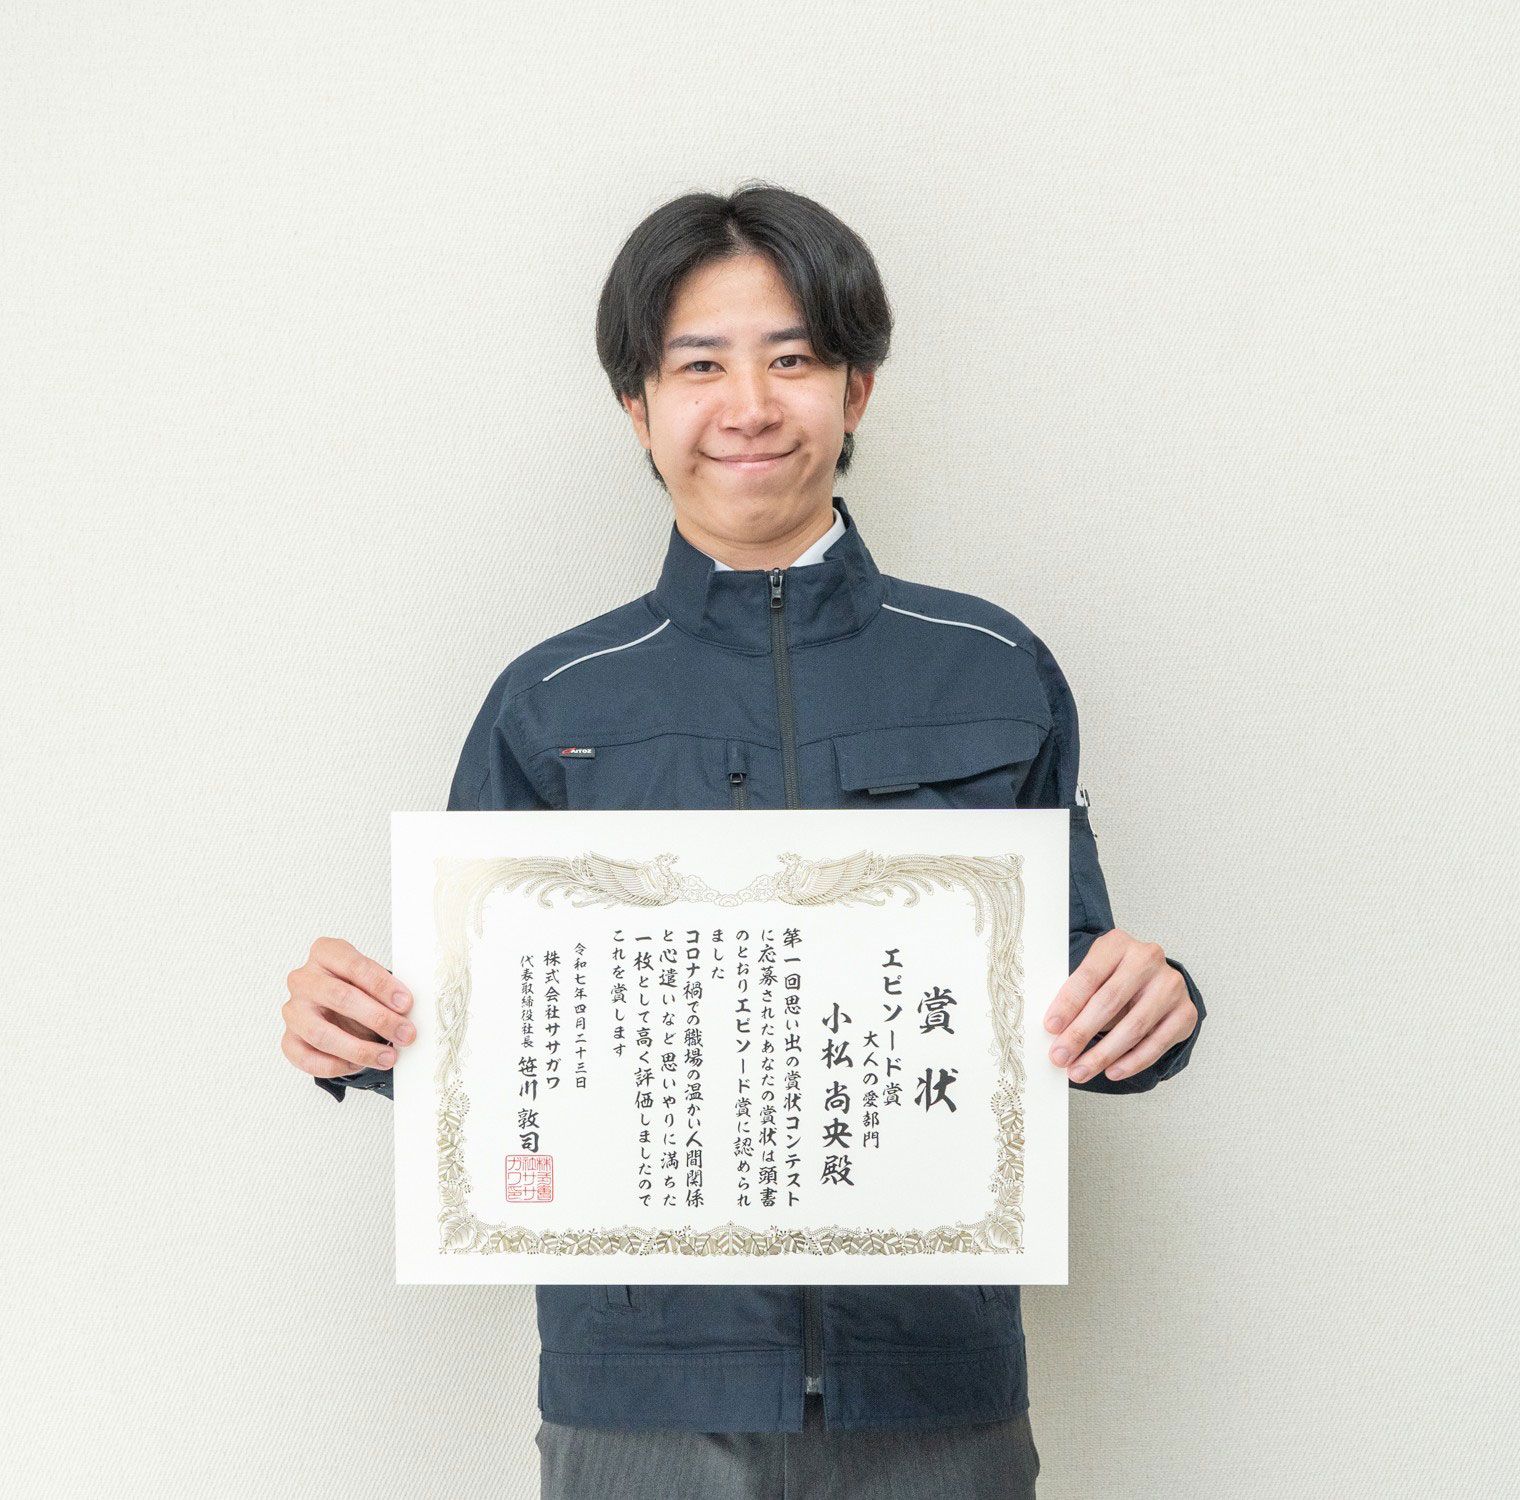 賞状
エピソード賞
大人の愛部門
小松 尚央殿
第一回思い出の賞状コンテスト
に応募されたあなたの賞状は頭書
のとおりエピソード賞に認められ
ました
コロナ禍での職場の温かい人間関係
と心遣いなど思いやりに満ちた
一枚として高く評価しましたので
これを賞します
令和七年四月二十三日
株式会社ササガワ
代表取締役社長 笹川 敦司
AITOZ